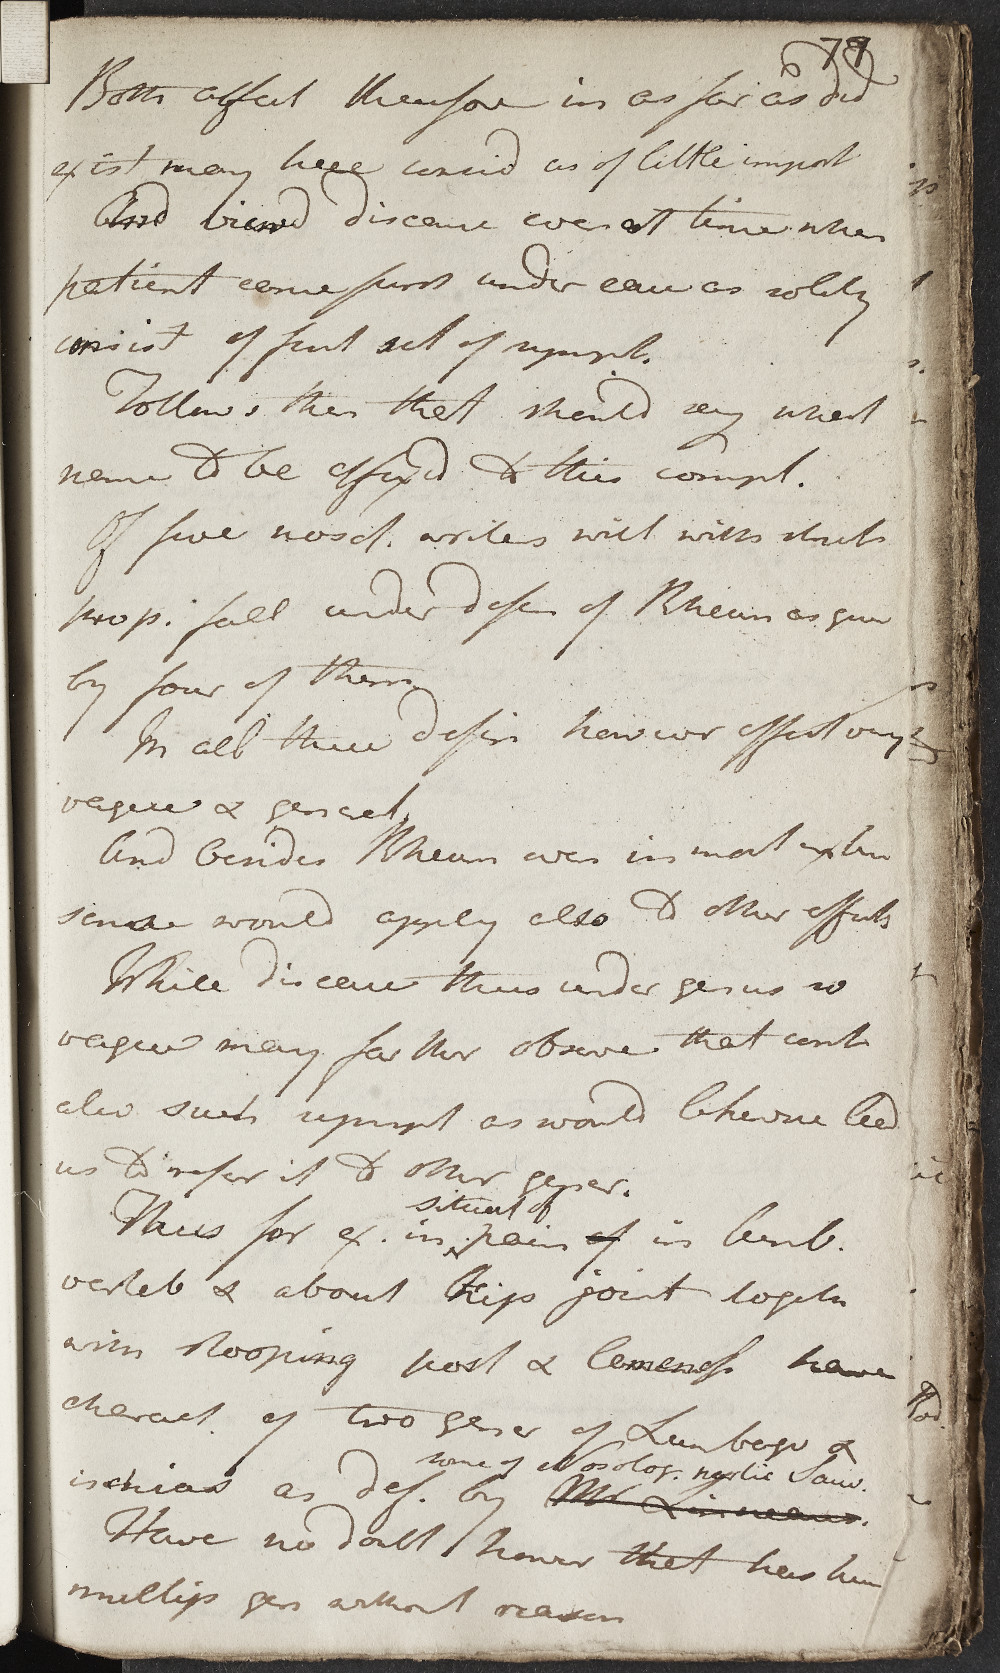 77
Both affect therefore in as far as did
exist may here consid as of little import
And viewd disease even at time when
patient came first under care as solely
consist of first set of sympt.
Follows then that should say what
name to be affixd to this compl.
Of five nosol. writers will with
prop. fall under defin of Rheum as given
by four of them
In all these defin however affect very
vague & general
And besides Rheum even in most exten
sense would apply also to other affects
While disease thus under genus so
vague may farther observe that
also such sympt as would likewise lead
us to refer it to other gener.
Thus for ex. in situat of pain of in lumb.
verteb & about hip joint togeth
with stooping post & lameness have
charact of two gener of Lumbago &
ischias as def. by some of Nosolog. Sauv.
Mr Linneaus.
Have no doubt however that has been
multip gen without reason